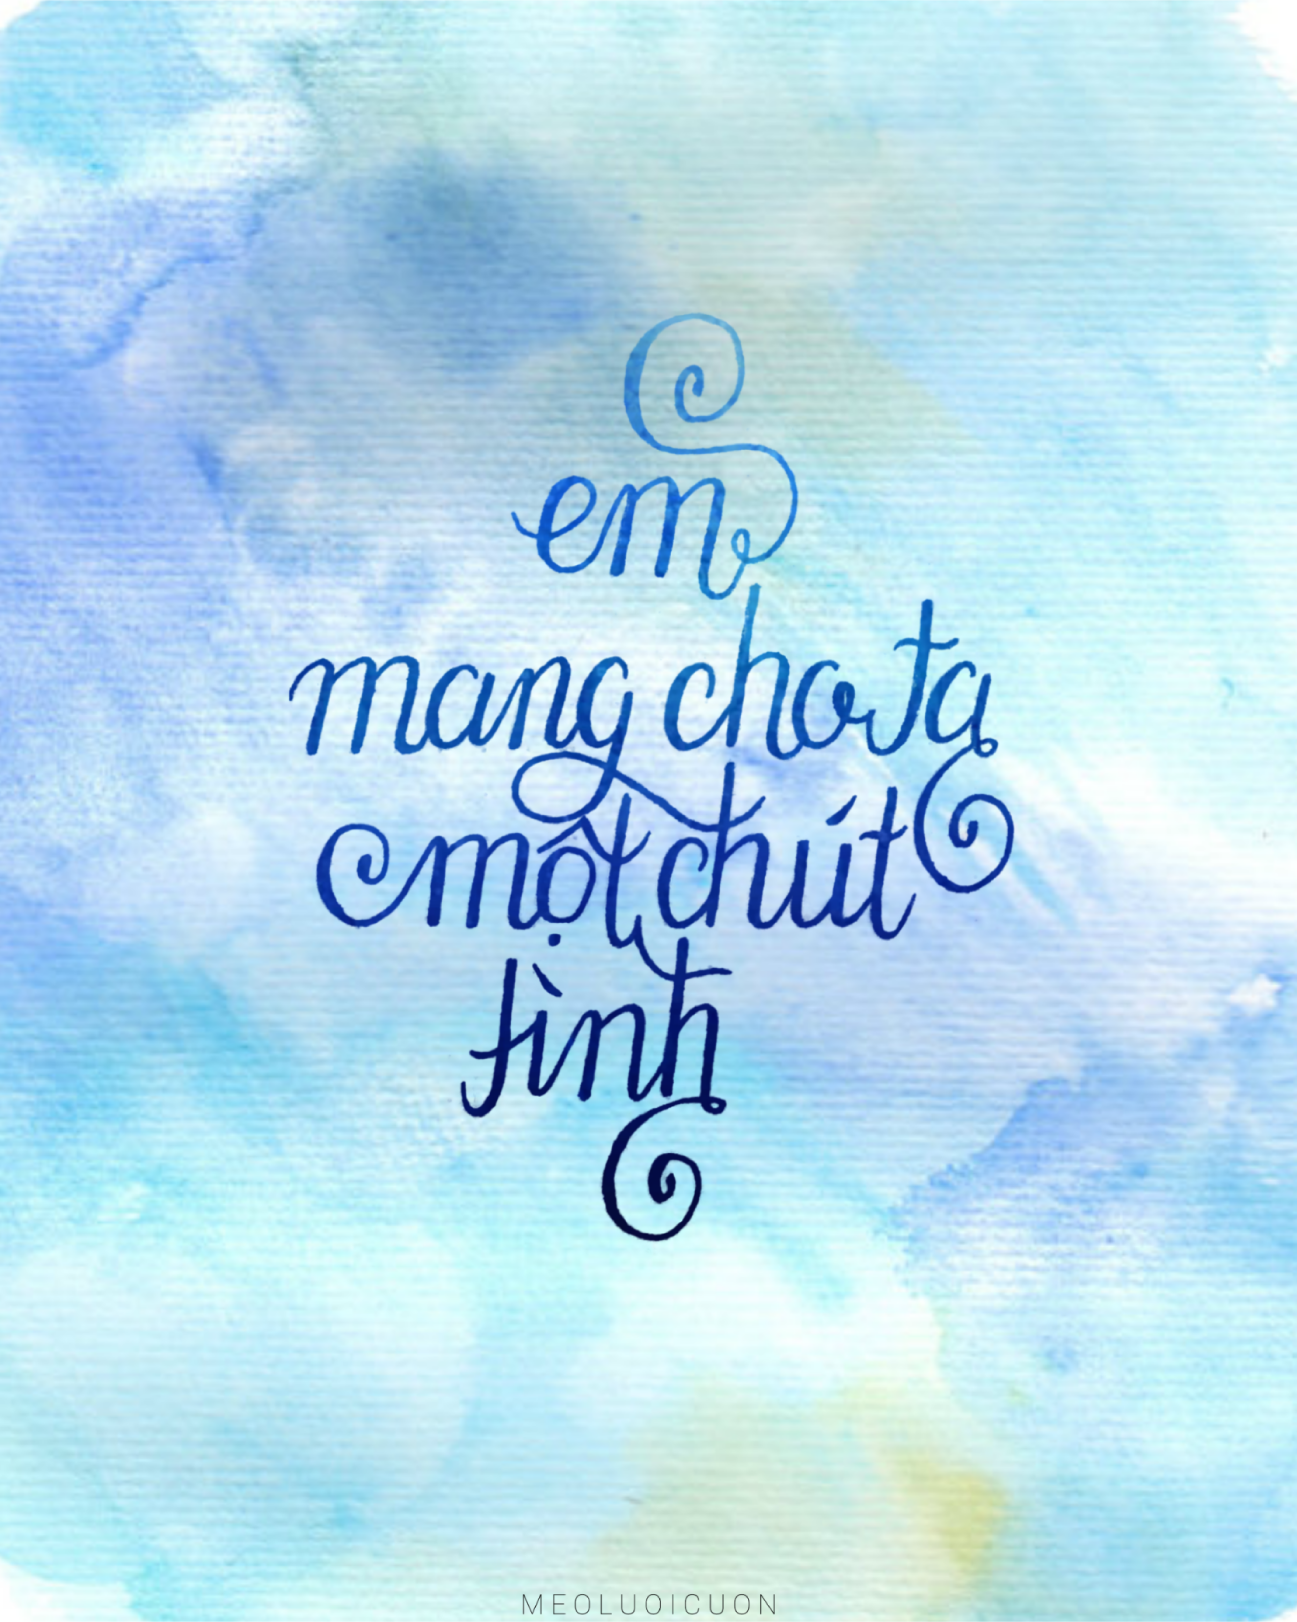 em
mang cho ta
một chút
tình
MEOLUOICUON